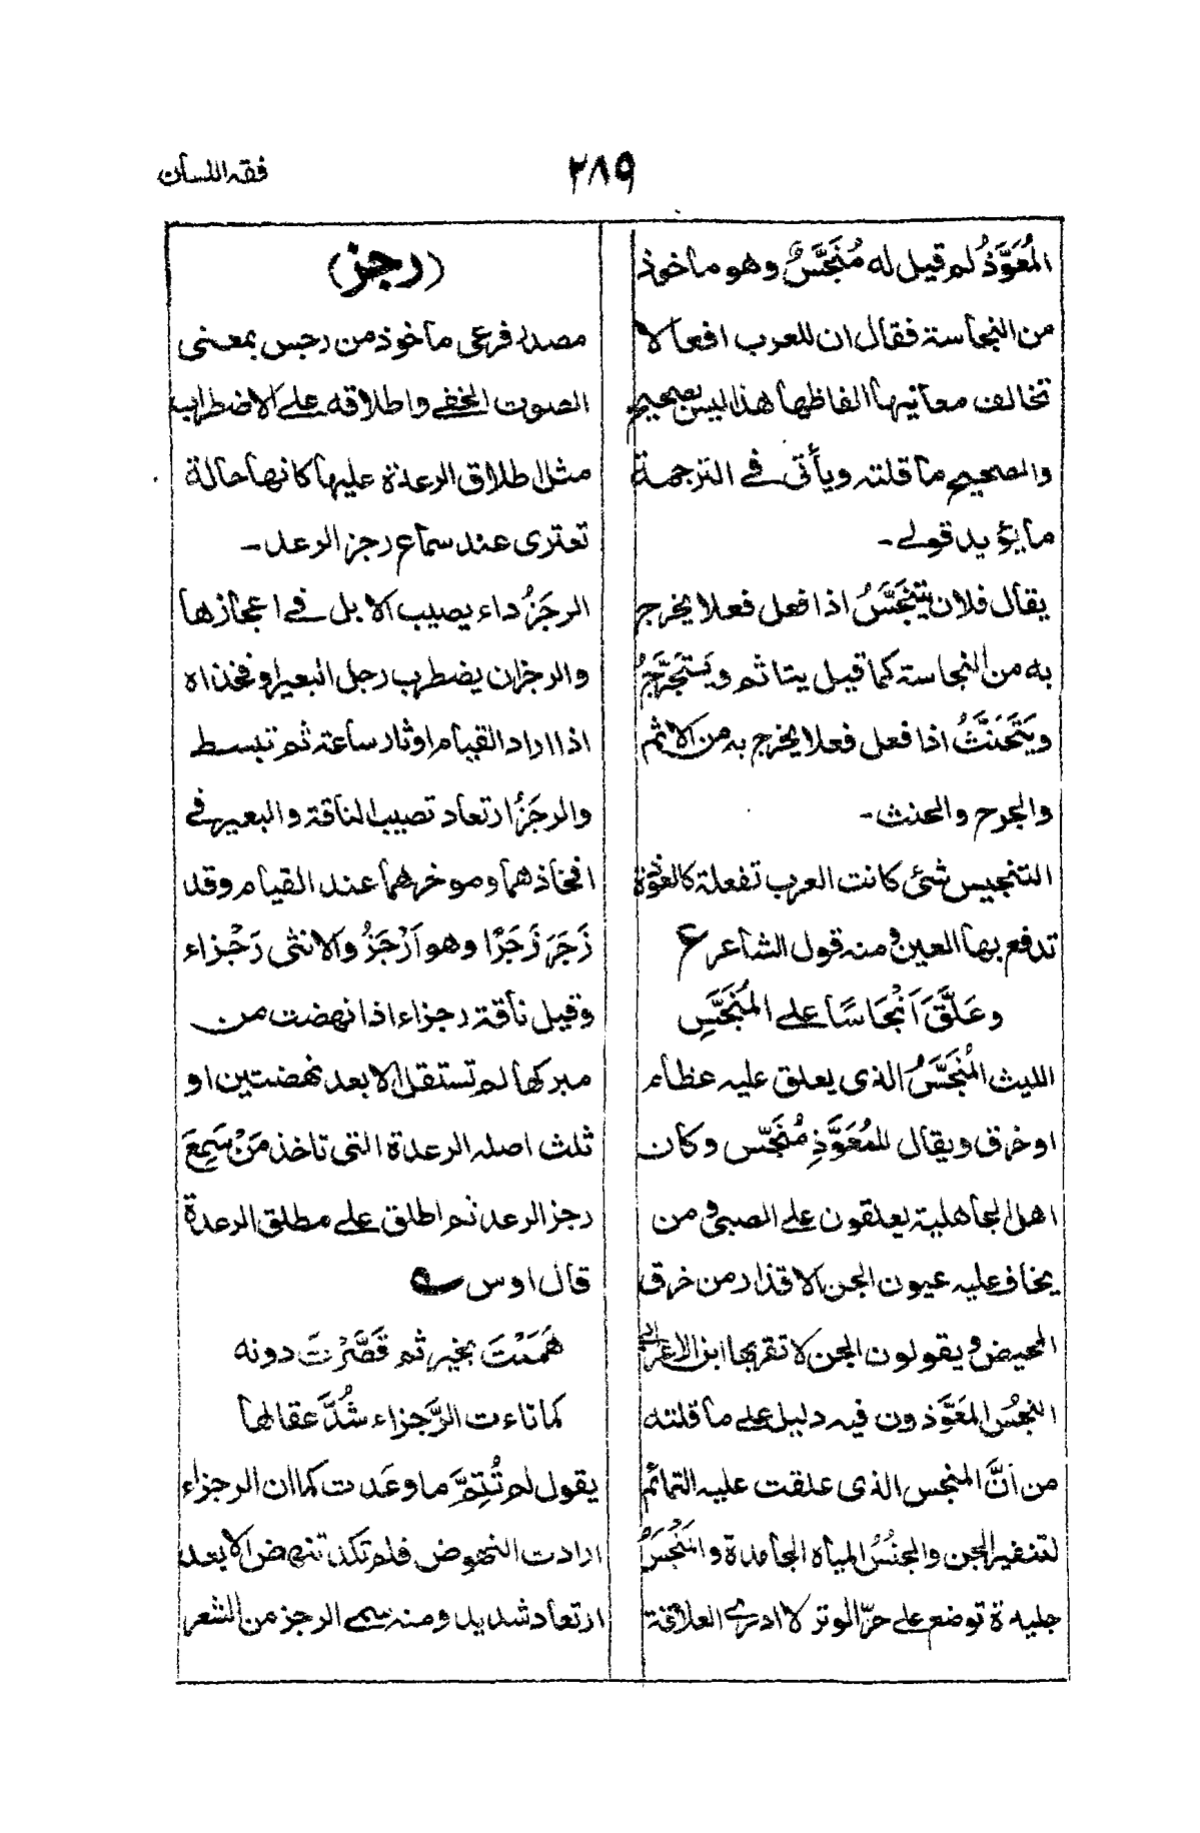 فقه اللسان
٢٨٩
المُعَوَّذُ لم قيل له مُنَجَّسٌ وهو ماخوذ
من النجاسة فقال ان للعرب افعالا
تخالف معانيها الفاظها هذا ليس بصحيح
والصحيح ما قلته ويأتى فى الترجمة
ما يؤيد قولى -
يقال فلان يَتَنَجَّسُ اذا فعل فعلا يخرج
به من النجاسة كما قيل يتاثم و يَتَحَرَّجُ
ويَتَحَنَّثُ اذا فعل فعلا يخرج به من الاثم
والجرح والحنث -
التنجيس شئ كانت العرب تفعلة كالعُوذة
تدفع بها العين و منه قول الشاعر ع
وعَلَّقَ اَنْجَاسًا على المُنَجَّسِ
الليث المُنَجَّسُ الذى يعلق عليه عظام
او خرق ويقال للمُعَوَّذِ مُنَجَّس وكان
اهل الجاهلية يعلقون على الصبى و من
يخاف عليه عيون الجن الاقذار من خرق
المحيض و يقولون الجن لا تقربها ابن الاعرابى
النجُس المعَوِّذون فيه دليل على ما قلته
من اَنَّ المنجس الذى علقت عليه التمائم
لتنفير الجن والنجُسُ المياه الجامدة والمَنْجَسُ
جليدة توضع على حزّ الوتر لا ادرى العلاقة
(رجز)
مصدر فرعى ماخوذ من رجس بمعنى
الصوت الخفى واطلاقه على الاضطراب
مثل اطلاق الرعدة عليها كانها حالة
تعترى عند سماع رجز الرعد -
الرجَزُ داء يصيب الابل فى اعجازها
والرجزان يضطرب رجل البعير او فخذاه
اذا اراد القيام او ثار ساعة ثم تبسط
والرجَزُ ارتعاد تصيب الناقة والبعير فى
افخاذهما وموخرهما عند القيام وقد
زَجَرَ زَجَرًا وهو اَرْجَزُ والانثى رَجْزاء
وقيل ناقة رجزاء اذا نهضت من
مبركها لم تستقل الا بعد نهضتين او
ثلث اصله الرعدة التى تاخذ مَنْ سَمِعَ
رجز الرعد ثم اطلق على مطلق الرعدة
قال اوس
هَمَمْتَ بخير ثم قَصَّرْتَ دونه
كما ناءت الرَّجزاء شُدَّ عقالها
يقول لم تُتِمَّ ما وعَدت كما ان الرجزاء
ارادت النهوض فلم تكد تنهض الا بعد
ارتعاد شديد ومنه سمى الرجز من الشعر